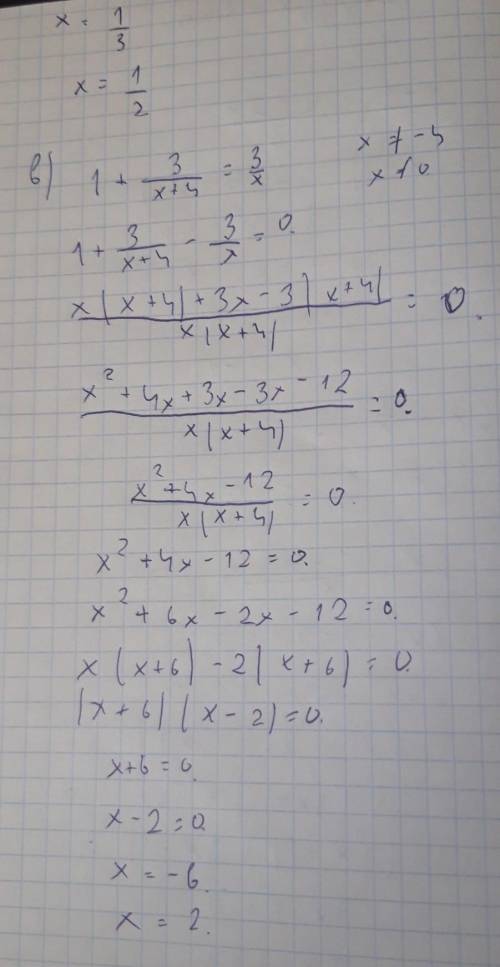 x = 1/3
x = 1/2
в) 1 + 3/(x+4) = 3/x
x ≠ -4
x ≠ 0
1 + 3/(x+4) - 3/x = 0.
(x(x+4)+3x-3(x+4))/(x(x+4)) = 0.
(x²+4x+3x-3x-12)/(x(x+4)) = 0.
(x²+4x-12)/(x(x+4)) = 0.
x²+4x-12=0.
x²+6x-2x-12=0.
x(x+6)-2(x+6)=0.
(x+6)(x-2)=0.
x+6=0.
x-2=0.
x=-6.
x=2.